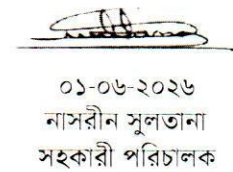 ০১-০৬-২০২৬
নাসরীন সুলতানা
সহকারী পরিচালক